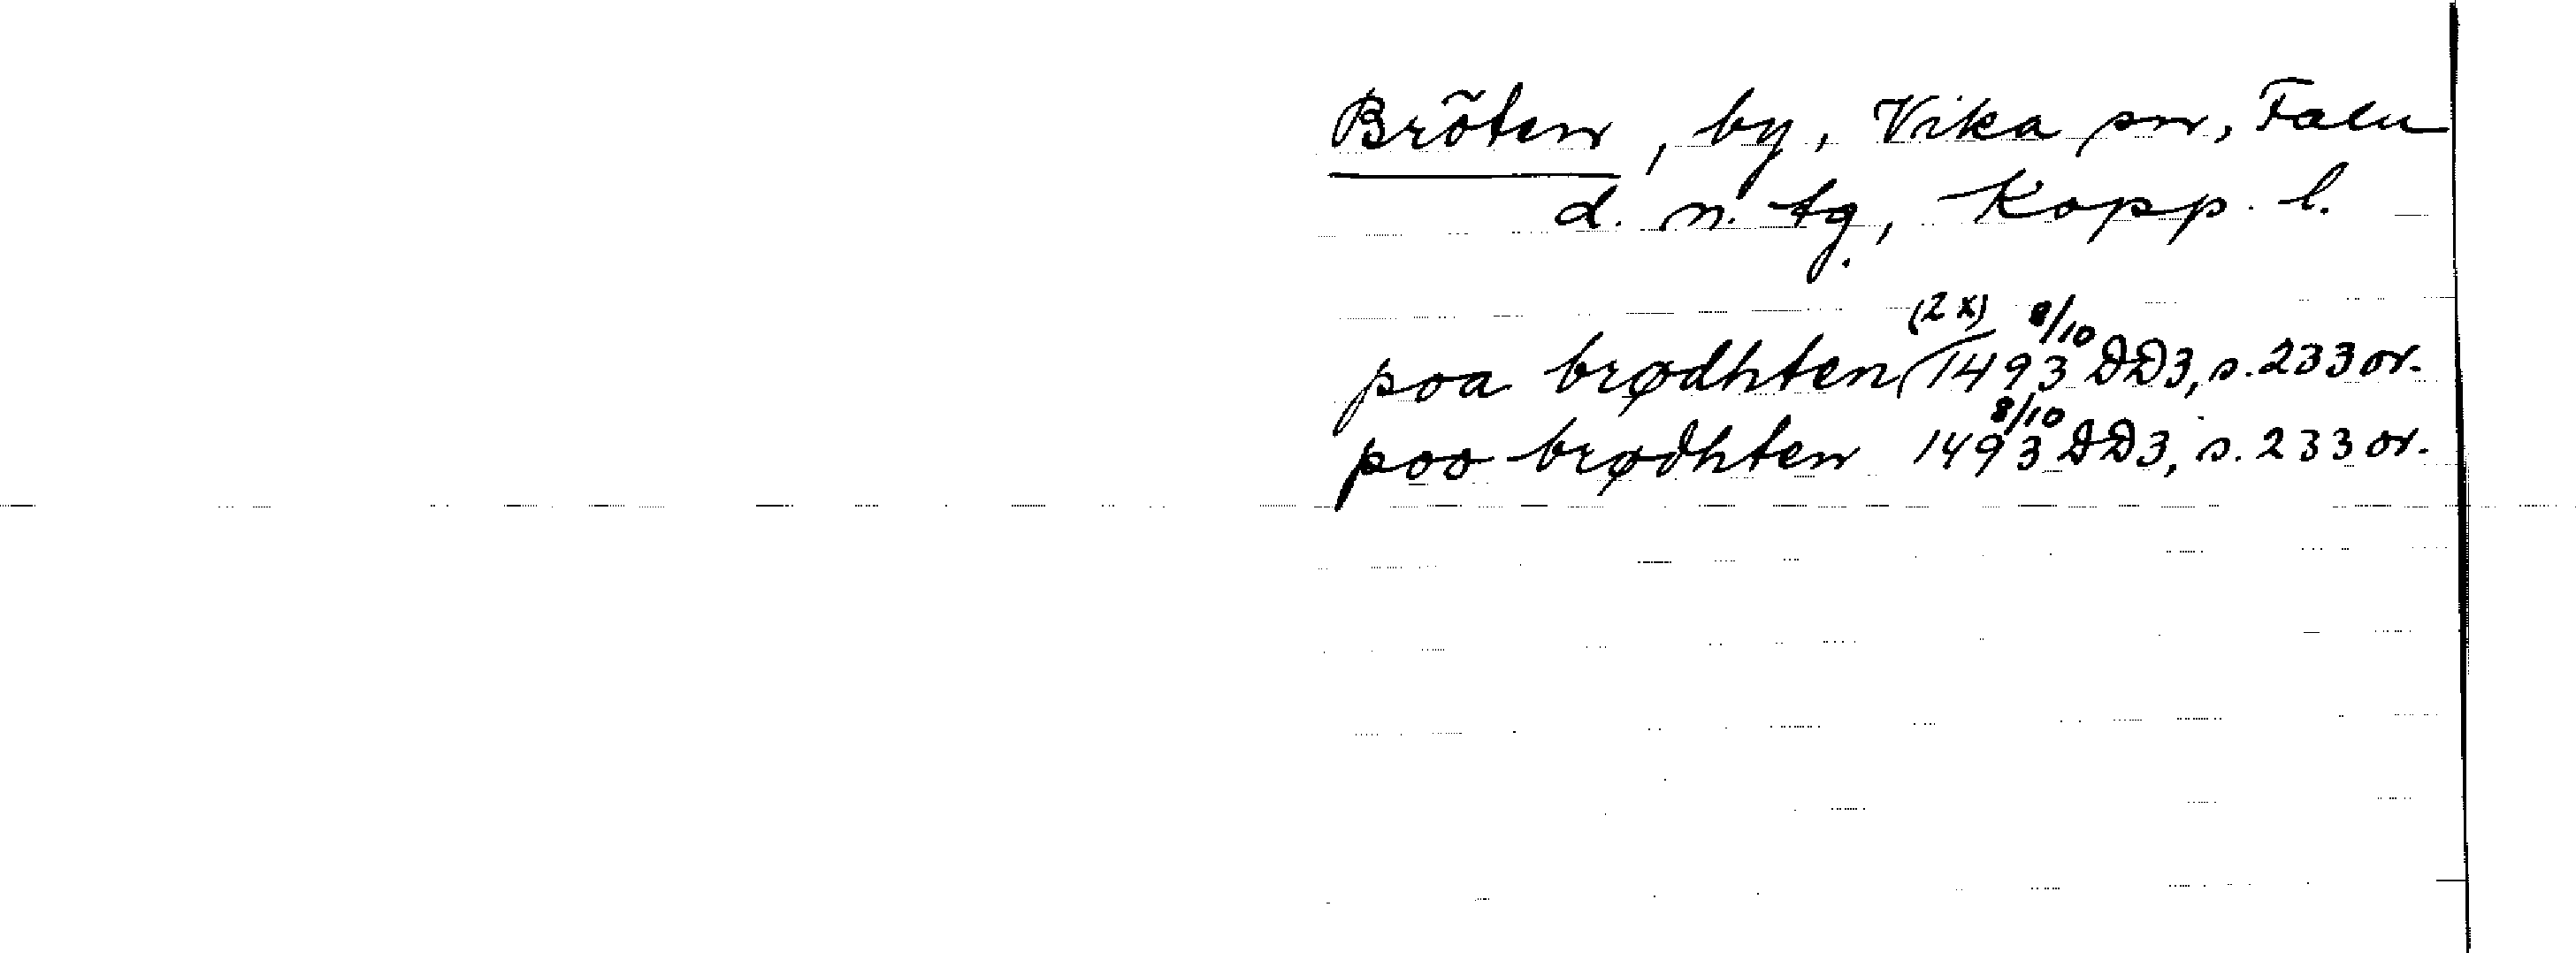 Brõten, by, Vika sn, Falu
d. n. tg, Kopp. l.
poa brødhten (2x) 1493 8/10 DD3, s. 233 or.
poo brødhten 1493 8/10 DD3, s. 233 or.